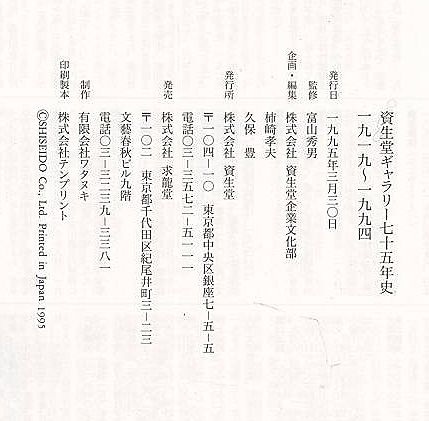 資生堂ギャラリー七十五年史
一九一九〜一九九四
発行日 一九九五年三月三〇日
監修 富山秀男
企画・編集 株式会社 資生堂企業文化部
柿崎孝夫
久保 豊
発行所 株式会社 資生堂
〒一〇四−一〇 東京都中央区銀座七−五−五
電話〇三−三五七二−五一一一
発売 株式会社 求龍堂
〒一〇二 東京都千代田区紀尾井町三−二三
文藝春秋ビル九階
電話〇三−三二三九−三三八一
制作 有限会社ワタヌキ
印刷製本 株式会社テンプリント
©SHISEIDO Co., Ltd. Printed in Japan 1995